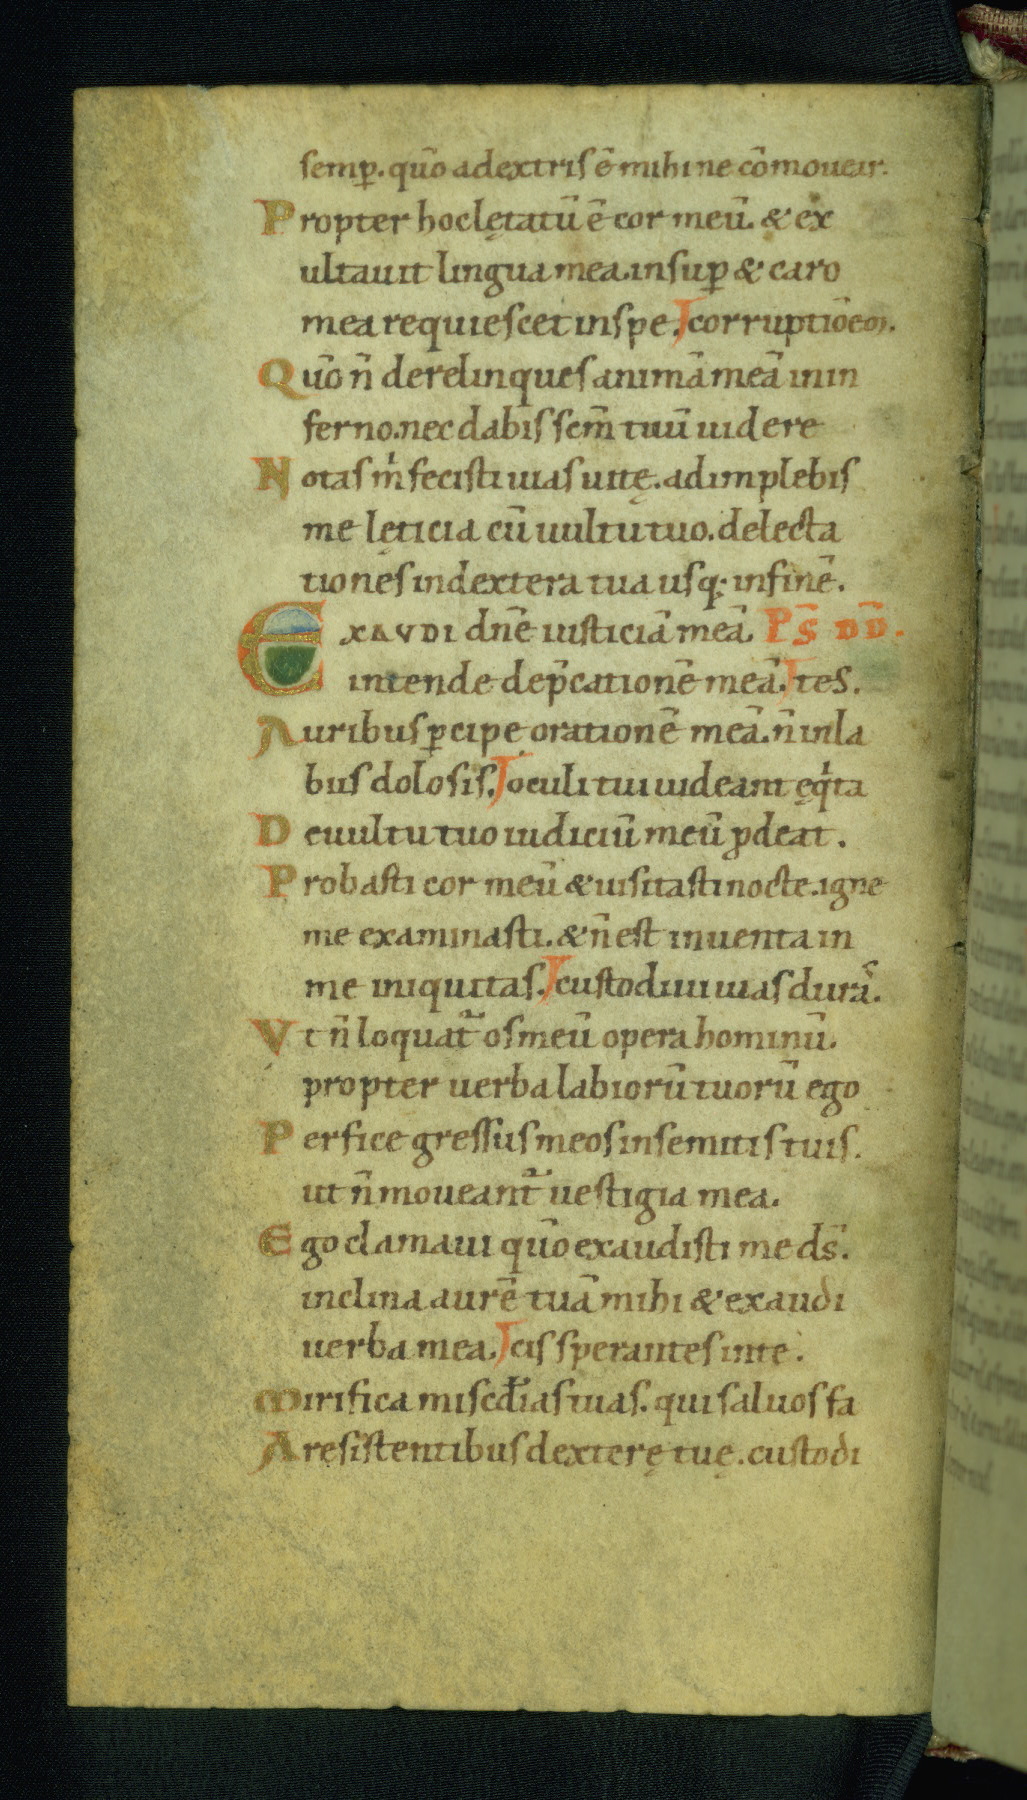 semꝑ. qūo adextris ē mihi ne cōmouear.
Propter hoc lętatū ē cor meū. & ex
ultauit lingua mea. insuꝑ & caro
mea requiescet in spe. corruptiōem.
Quō n̄ derelinques animā meā in in
ferno. nec dabis sc̄m tuū uidere
Notas m̍ fecisti uias uitę. adimplebis
me lęticia cū uultu tuo. delecta
tiones in dextera tua usq; in finē.
EXAVDI dn̄e iusticiā meā. PS̄ DD̄.
intende dep̄cationē meā. tes.
Auribus ꝑcipe orationē meā. n̄ in la
bus dolosis. oculi tui uideant ęq̍ta
De uultu tuo iudiciū meū ꝓdeat.
Probasti cor meū & uisitasti nocte. igne
me examinasti. & n̄ est inuenta in
me iniquitas. custodiui uias durās.
Vt n̄ loquat᷑ os meū opera hominū.
propter uerba labiorū tuorū ego
Perfice gressus meos in semitis tuis.
ut n̄ moueant᷑ uestigia mea.
Ego clamaui qūo exaudisti me ds̄.
inclina aurē tuā mihi & exaudi
uerba mea. cis sperantes in te.
Mirifica misc̄dias tuas. qui saluos fa
A resistentibus dexterę tuę. custodi